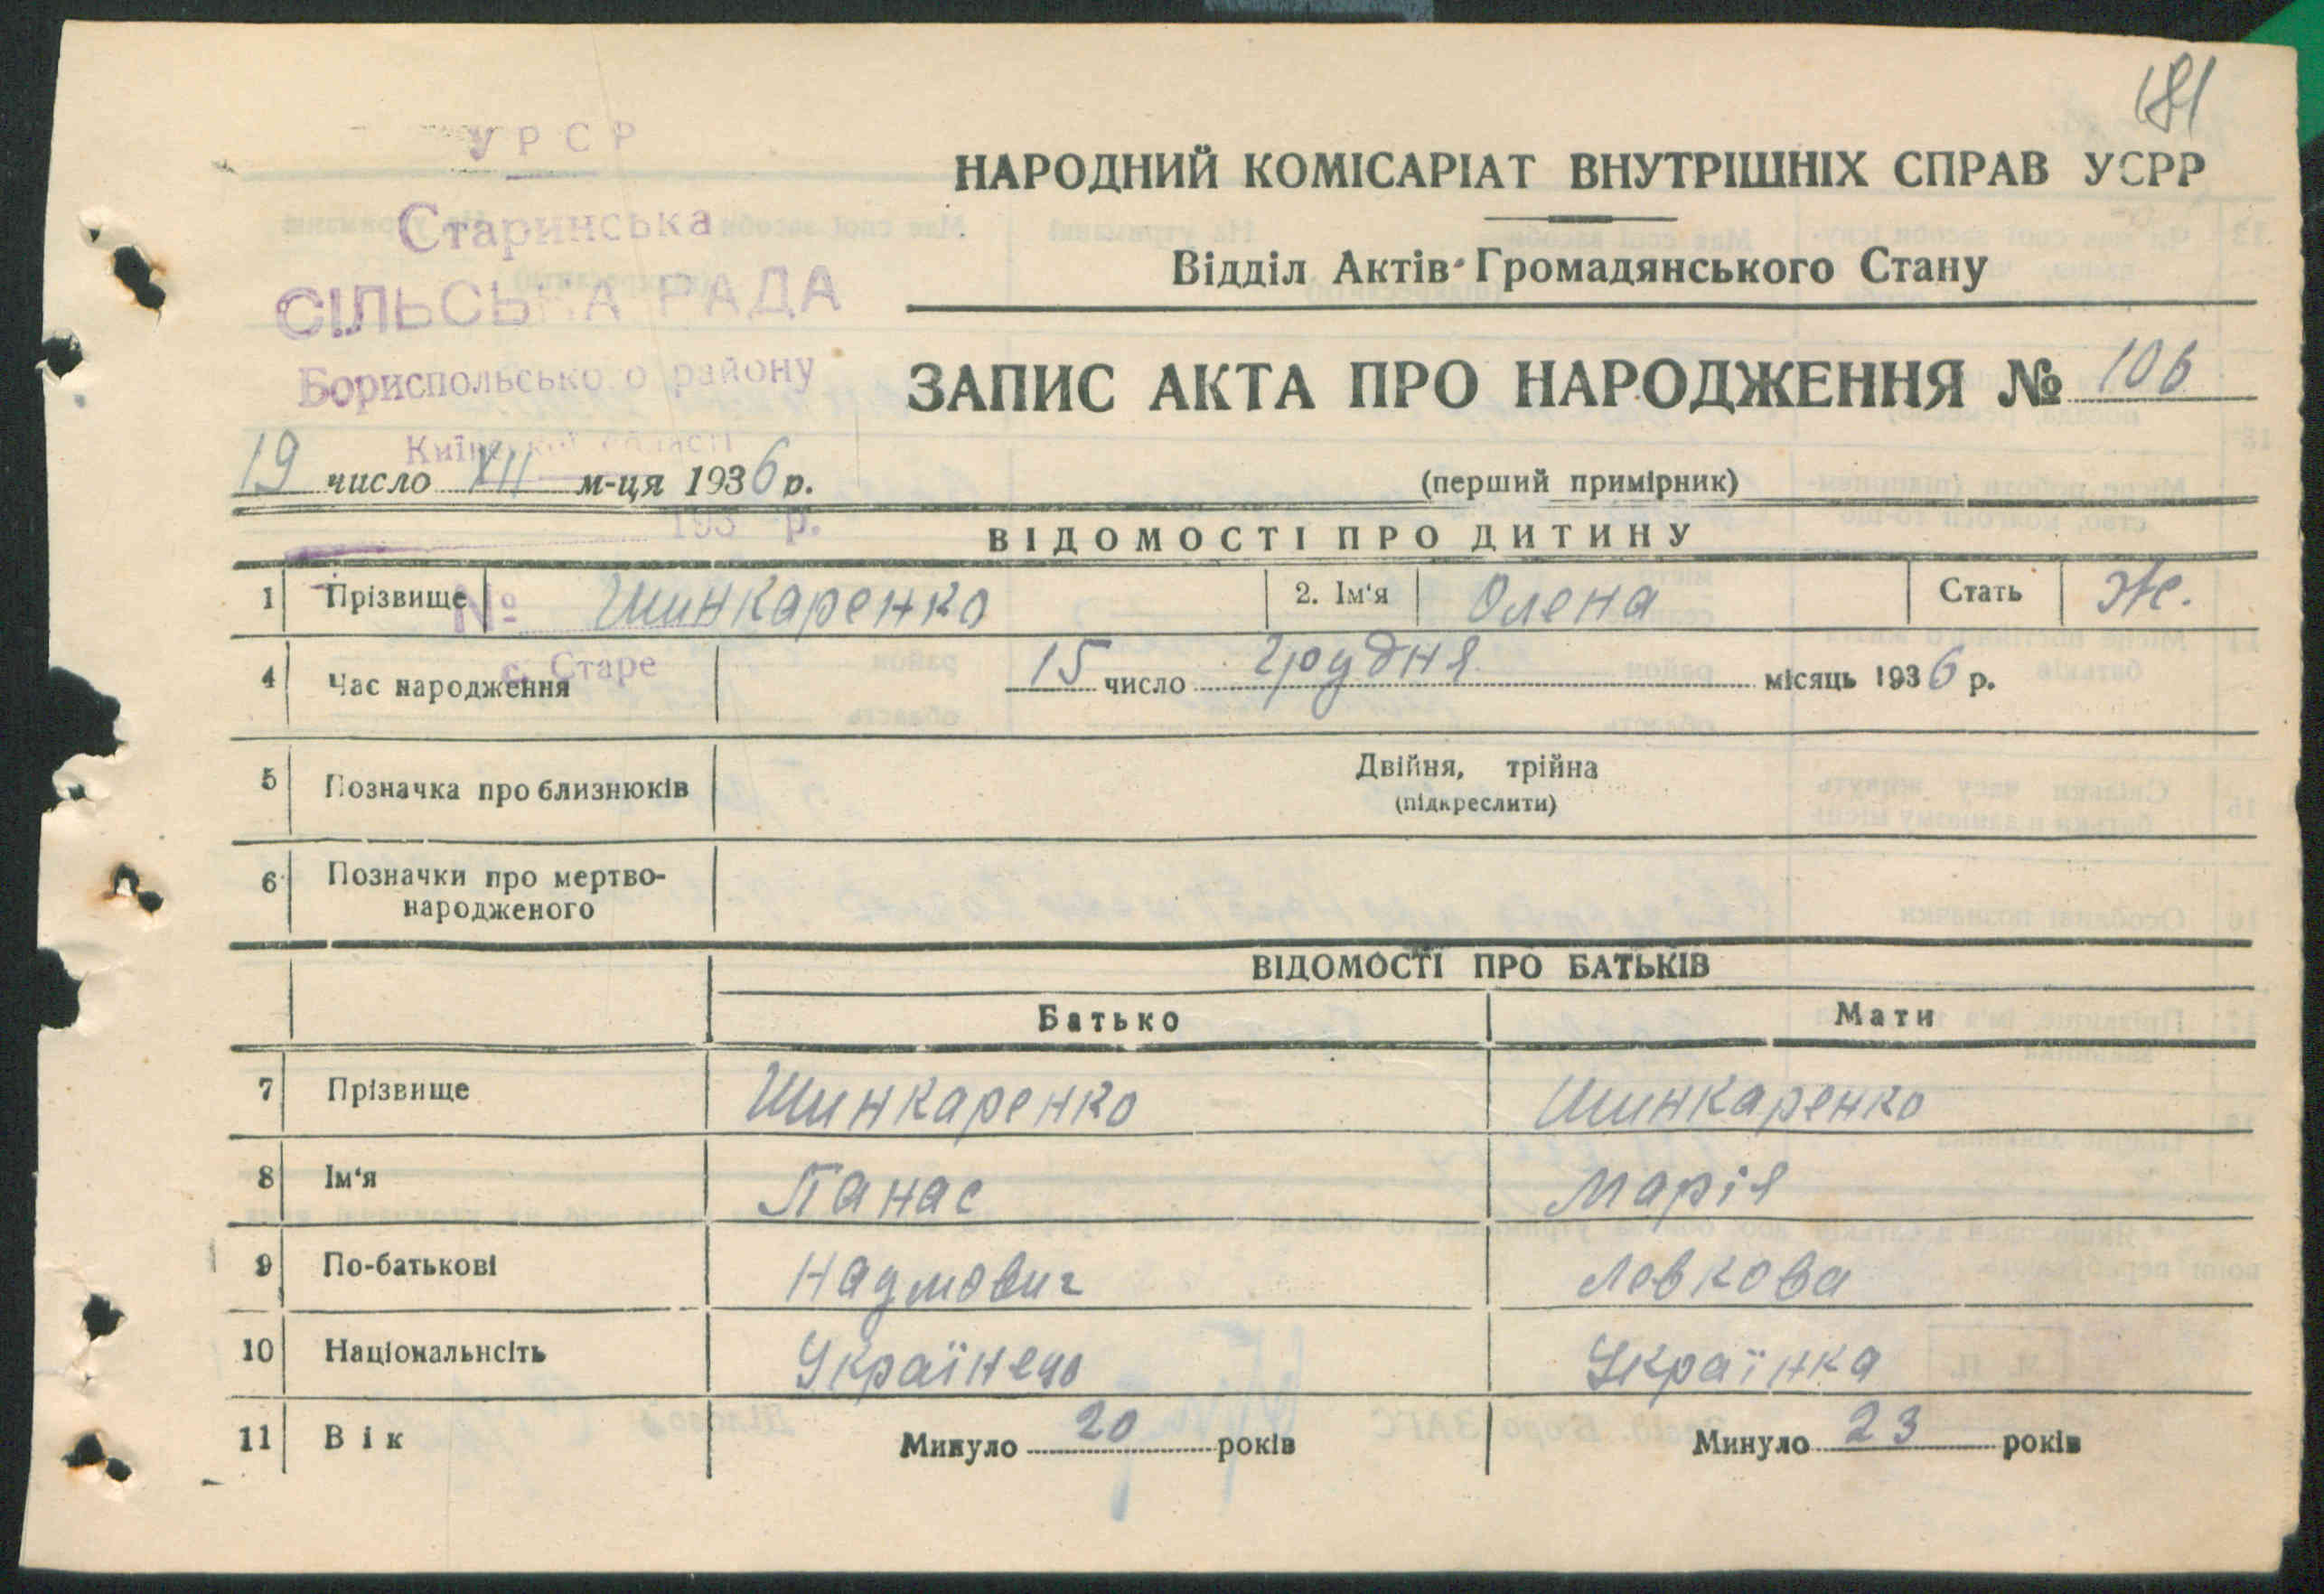 181
УРСР
Старинська
СІЛЬСЬКА РАДА
Бориспольського району
Київської області
193 р.
№
с. Старе
НАРОДНИЙ КОМІСАРІАТ ВНУТРІШНІХ СПРАВ УСРР
Відділ Актів Громадянського Стану
ЗАПИС АКТА ПРО НАРОДЖЕННЯ № 106
19 число XII м-ця 1936 р.
(перший примірник)
ВІДОМОСТІ ПРО ДИТИНУ
1 Прізвище Шинкаренко 2. Ім'я Олена Стать Ж.
4 Час народження 15 число грудня місяць 1936 р.
5 Позначка про близнюків Двійня, трійна
(підкреслити)
6 Позначки про мертво-
народженого
ВІДОМОСТІ ПРО БАТЬКІВ
Батько Мати
7 Прізвище Шинкаренко Шинкаренко
8 Ім'я Панас Марія
9 По-батькові Левкова
10 Національнсіть Українець Українка
11 Вік Минуло 20 років Минуло 23 років